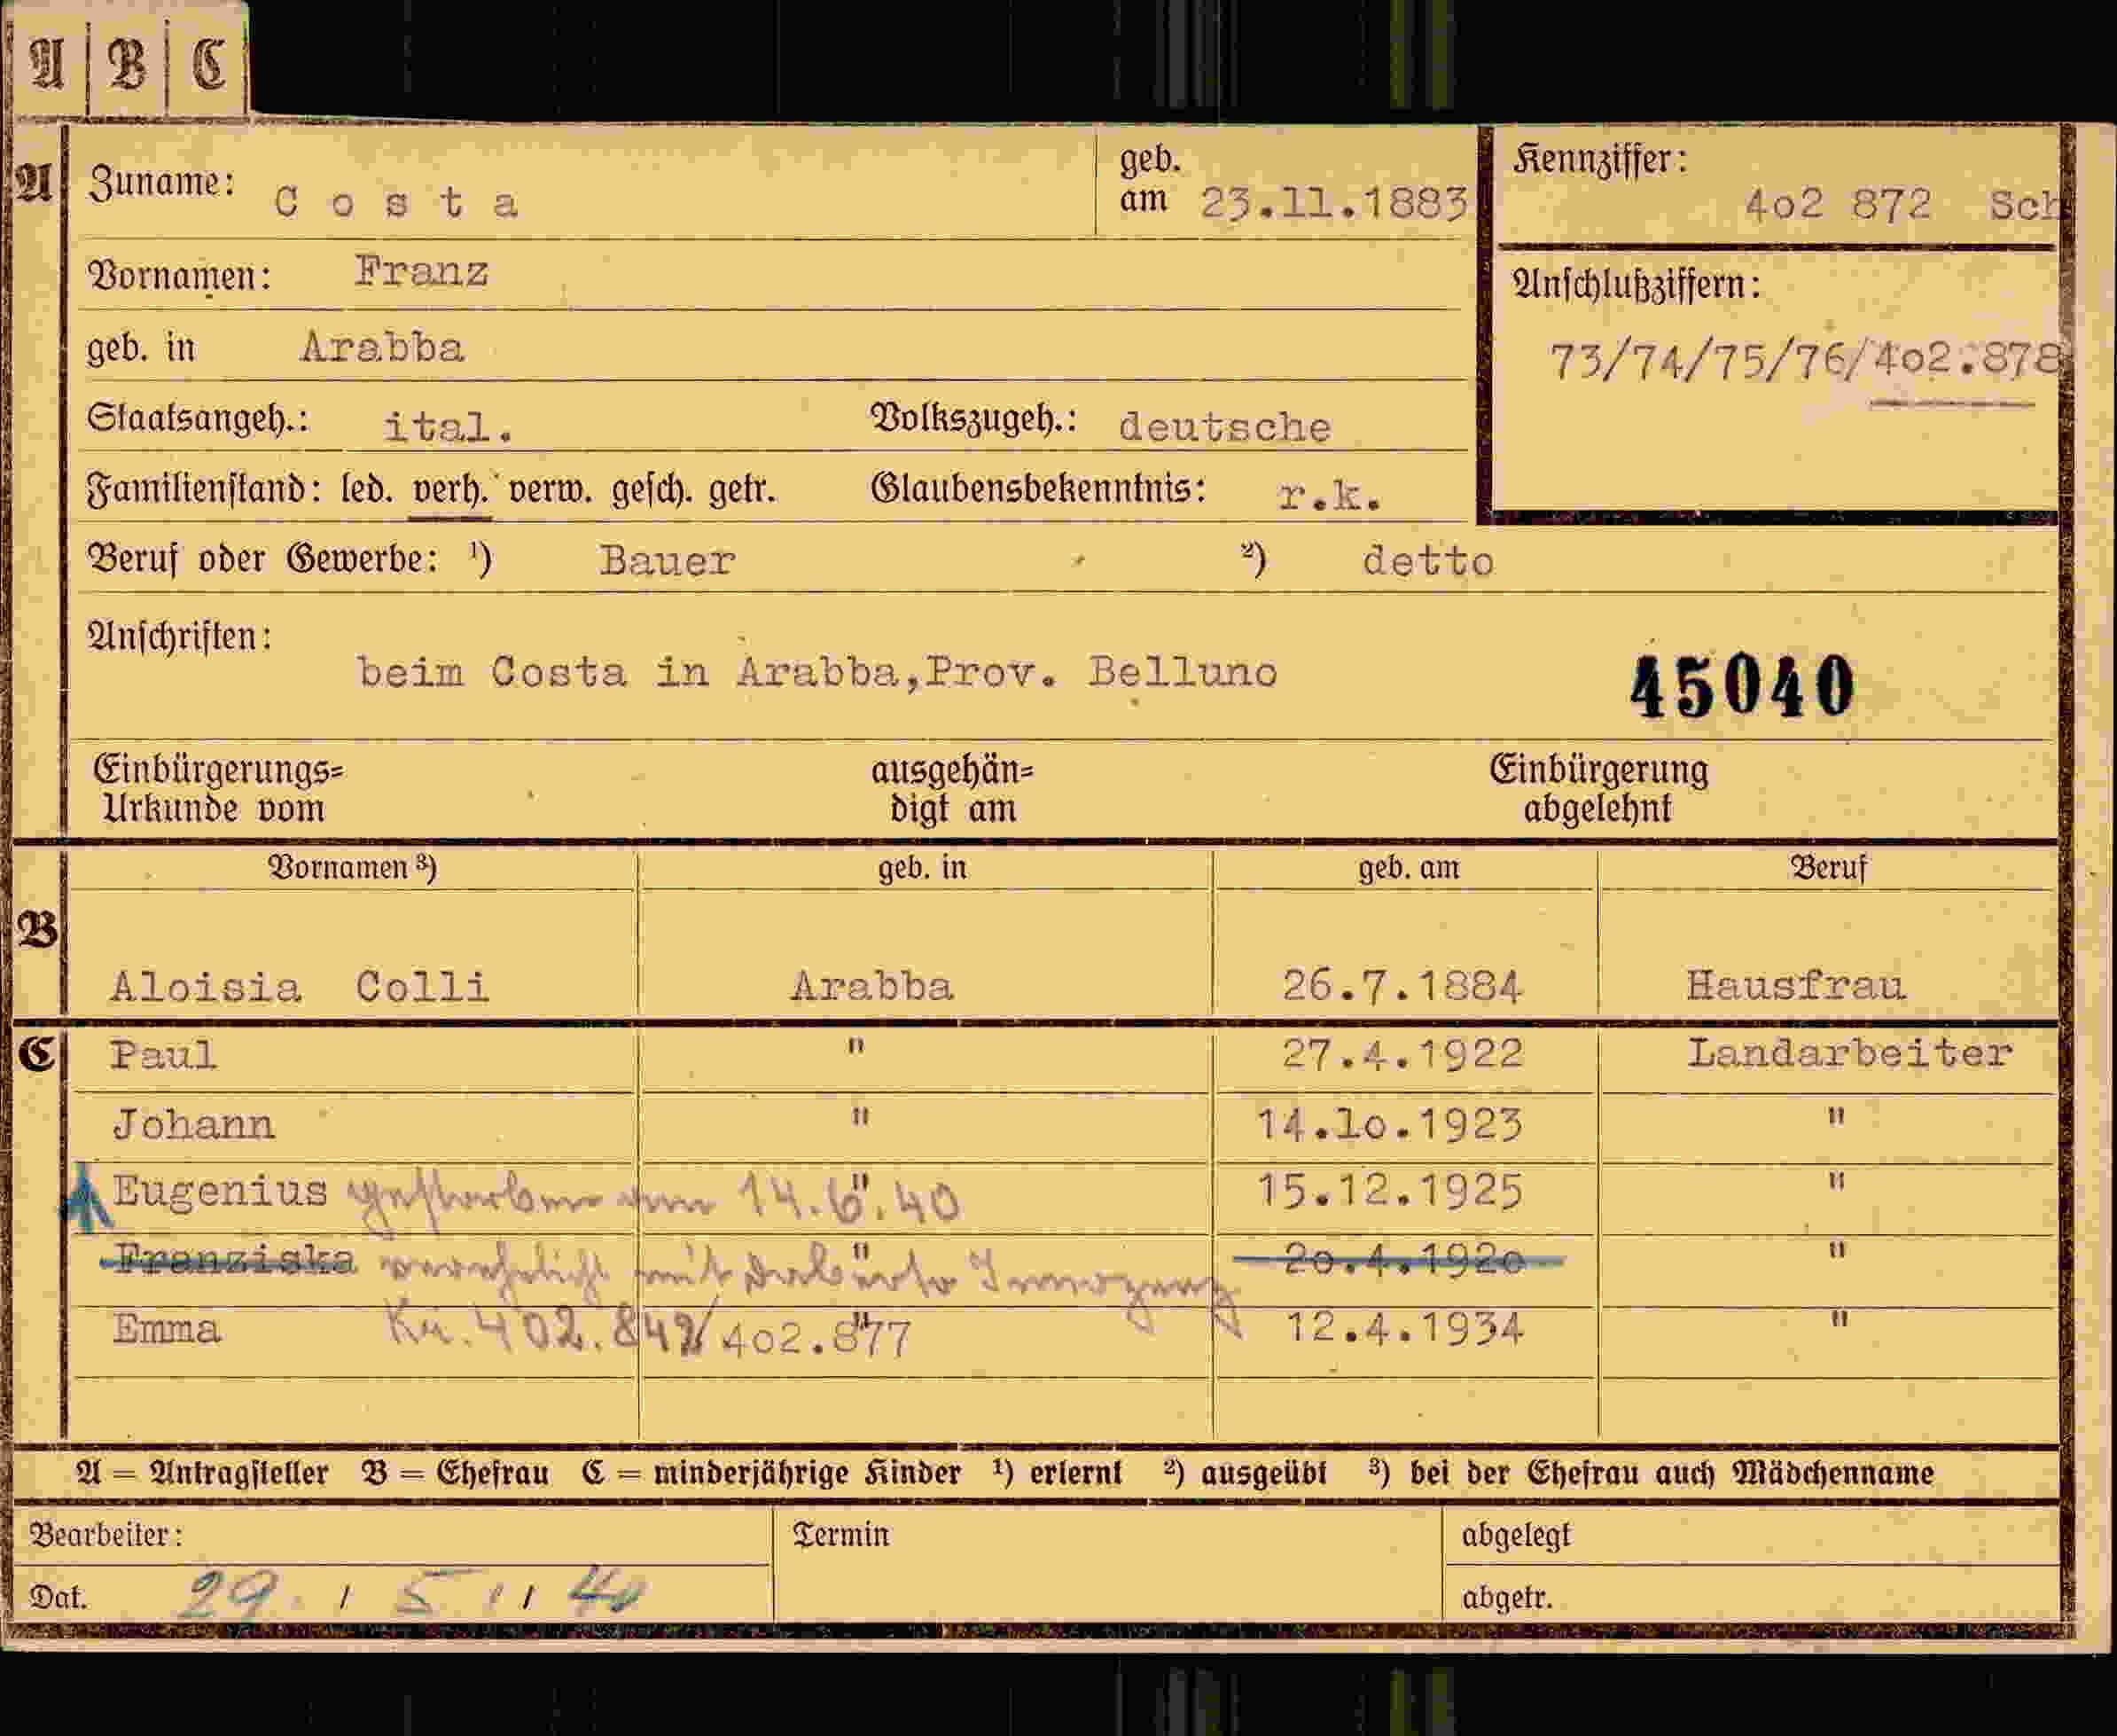 A B C
A Zuname: Costa geb. am 23.11.1883 Kennziffer: 4o2 872 Sch
Vornamen: Franz
Anschlußziffern:
geb. in Arabba 73/74/75/76/4o2.878
Staatsangeh.: ital. Volkszugeh.: deutsche
Familienstand: led. verh. verw. gesch. getr. Glaubensbekenntnis: r.k.
Beruf oder Gewerbe: ¹) Bauer ²) detto
Anschriften:
beim Costa in Arabba,Prov. Belluno 45040
Einbürgerungs= ausgehän= Einbürgerung
Urkunde vom digt am abgelehnt
Vornamen ³) geb. in geb. am Beruf
B
Aloisia Colli Arabba 26.7.1884 Hausfrau
C Paul " 27.4.1922 Landarbeiter
Johann " 14.1o.1923 "
Eugenius gestorben am 14.6.40 " 15.12.1925 "
Franziska verehelicht mit " 2o.4.192o "
Emma Kn. 402.842/402.877 " 12.4.1934 "
A = Antragsteller B = Ehefrau C = minderjährige Kinder ¹) erlernt ²) ausgeübt ³) bei der Ehefrau auch Mädchenname
Bearbeiter: Termin abgelegt
Dat. 29. / 5 / 40 abgetr.